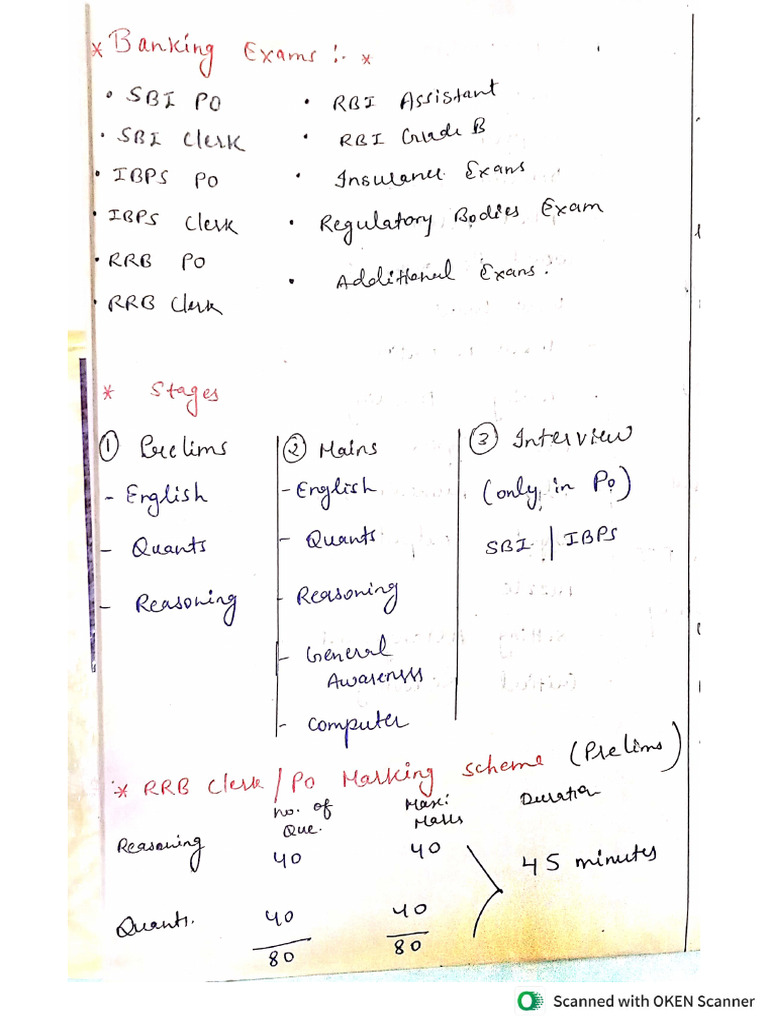 * Banking Exams :- *
• SBI PO
• SBI Clerk
• IBPS PO
• IBPS Clerk
• RRB PO
• RRB Clerk
• RBI Assistant
• RBI Grade B
• Insurance Exans
• Regulatory Bodies Exam
• Additional Exans:
* Stages
① Prelims
- English
- Quants
- Reasoning
② Mains
- English
- Quants
- Reasoning
- General
Awareness
- Computer
③ Interview
(only in PO)
SBI | IBPS
* RRB Clerk / PO Marking scheme (Prelims)
no. of Que. Max: Marks Duration
Reasoning 40 40
45 minutes
Quants. 40 40
80 80
Scanned with OKEN Scanner